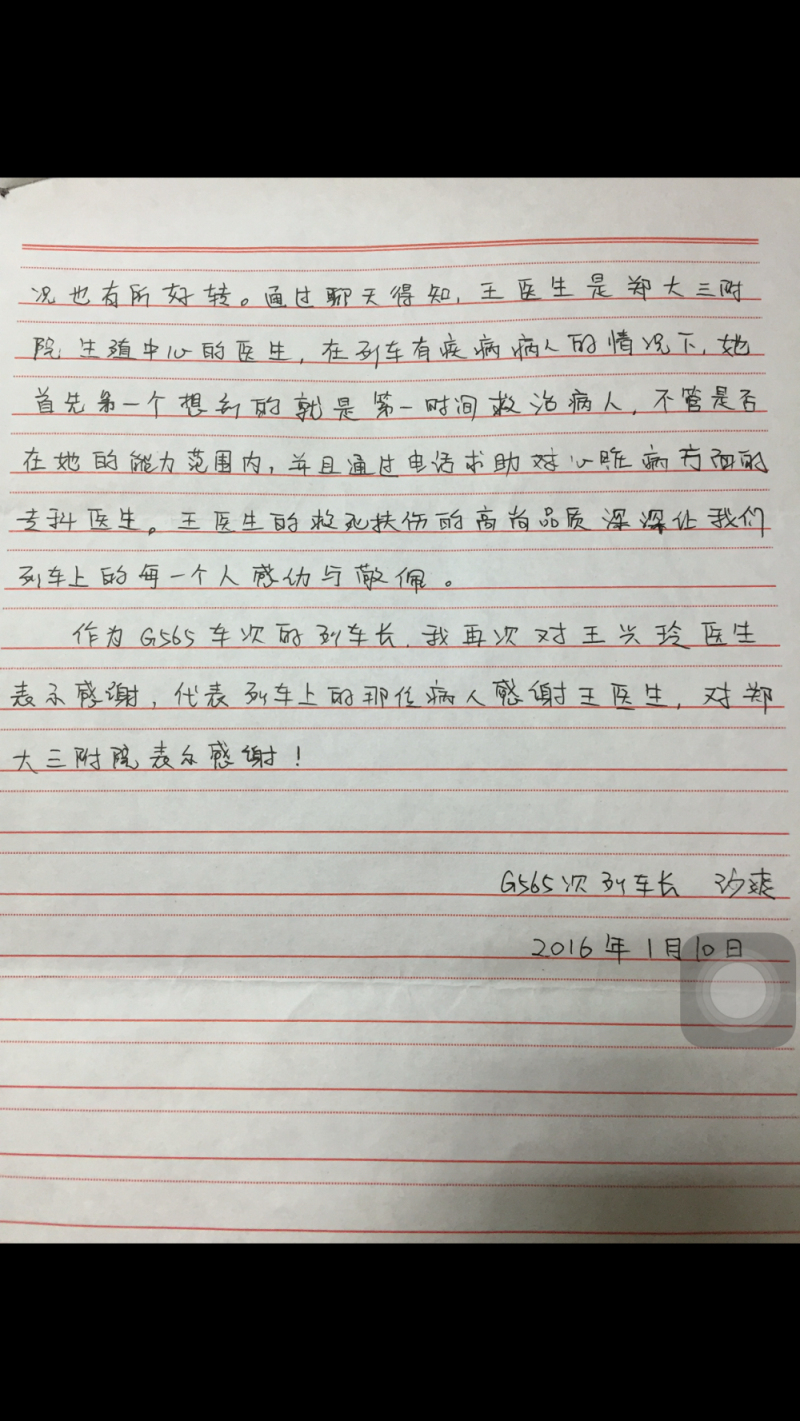 况也有所好转。通过聊天得知,王医生是郑大三附
院生殖中心的医生,在列车有疾病病人的情况下,她
首先第一个想到的就是第一时间救治病人,不管是否
在她的能力范围内,并且通过电话求助对心脏病方面的
专科医生。王医生的救死扶伤的高尚品质深深让我们
列车上的每一个人感动与敬佩。
作为G565车次的列车长,我再次对王兴玲医生
表示感谢,代表列车上的那位病人感谢王医生,对郑
大三附院表示感谢!
G565次列车长
2016年1月10日